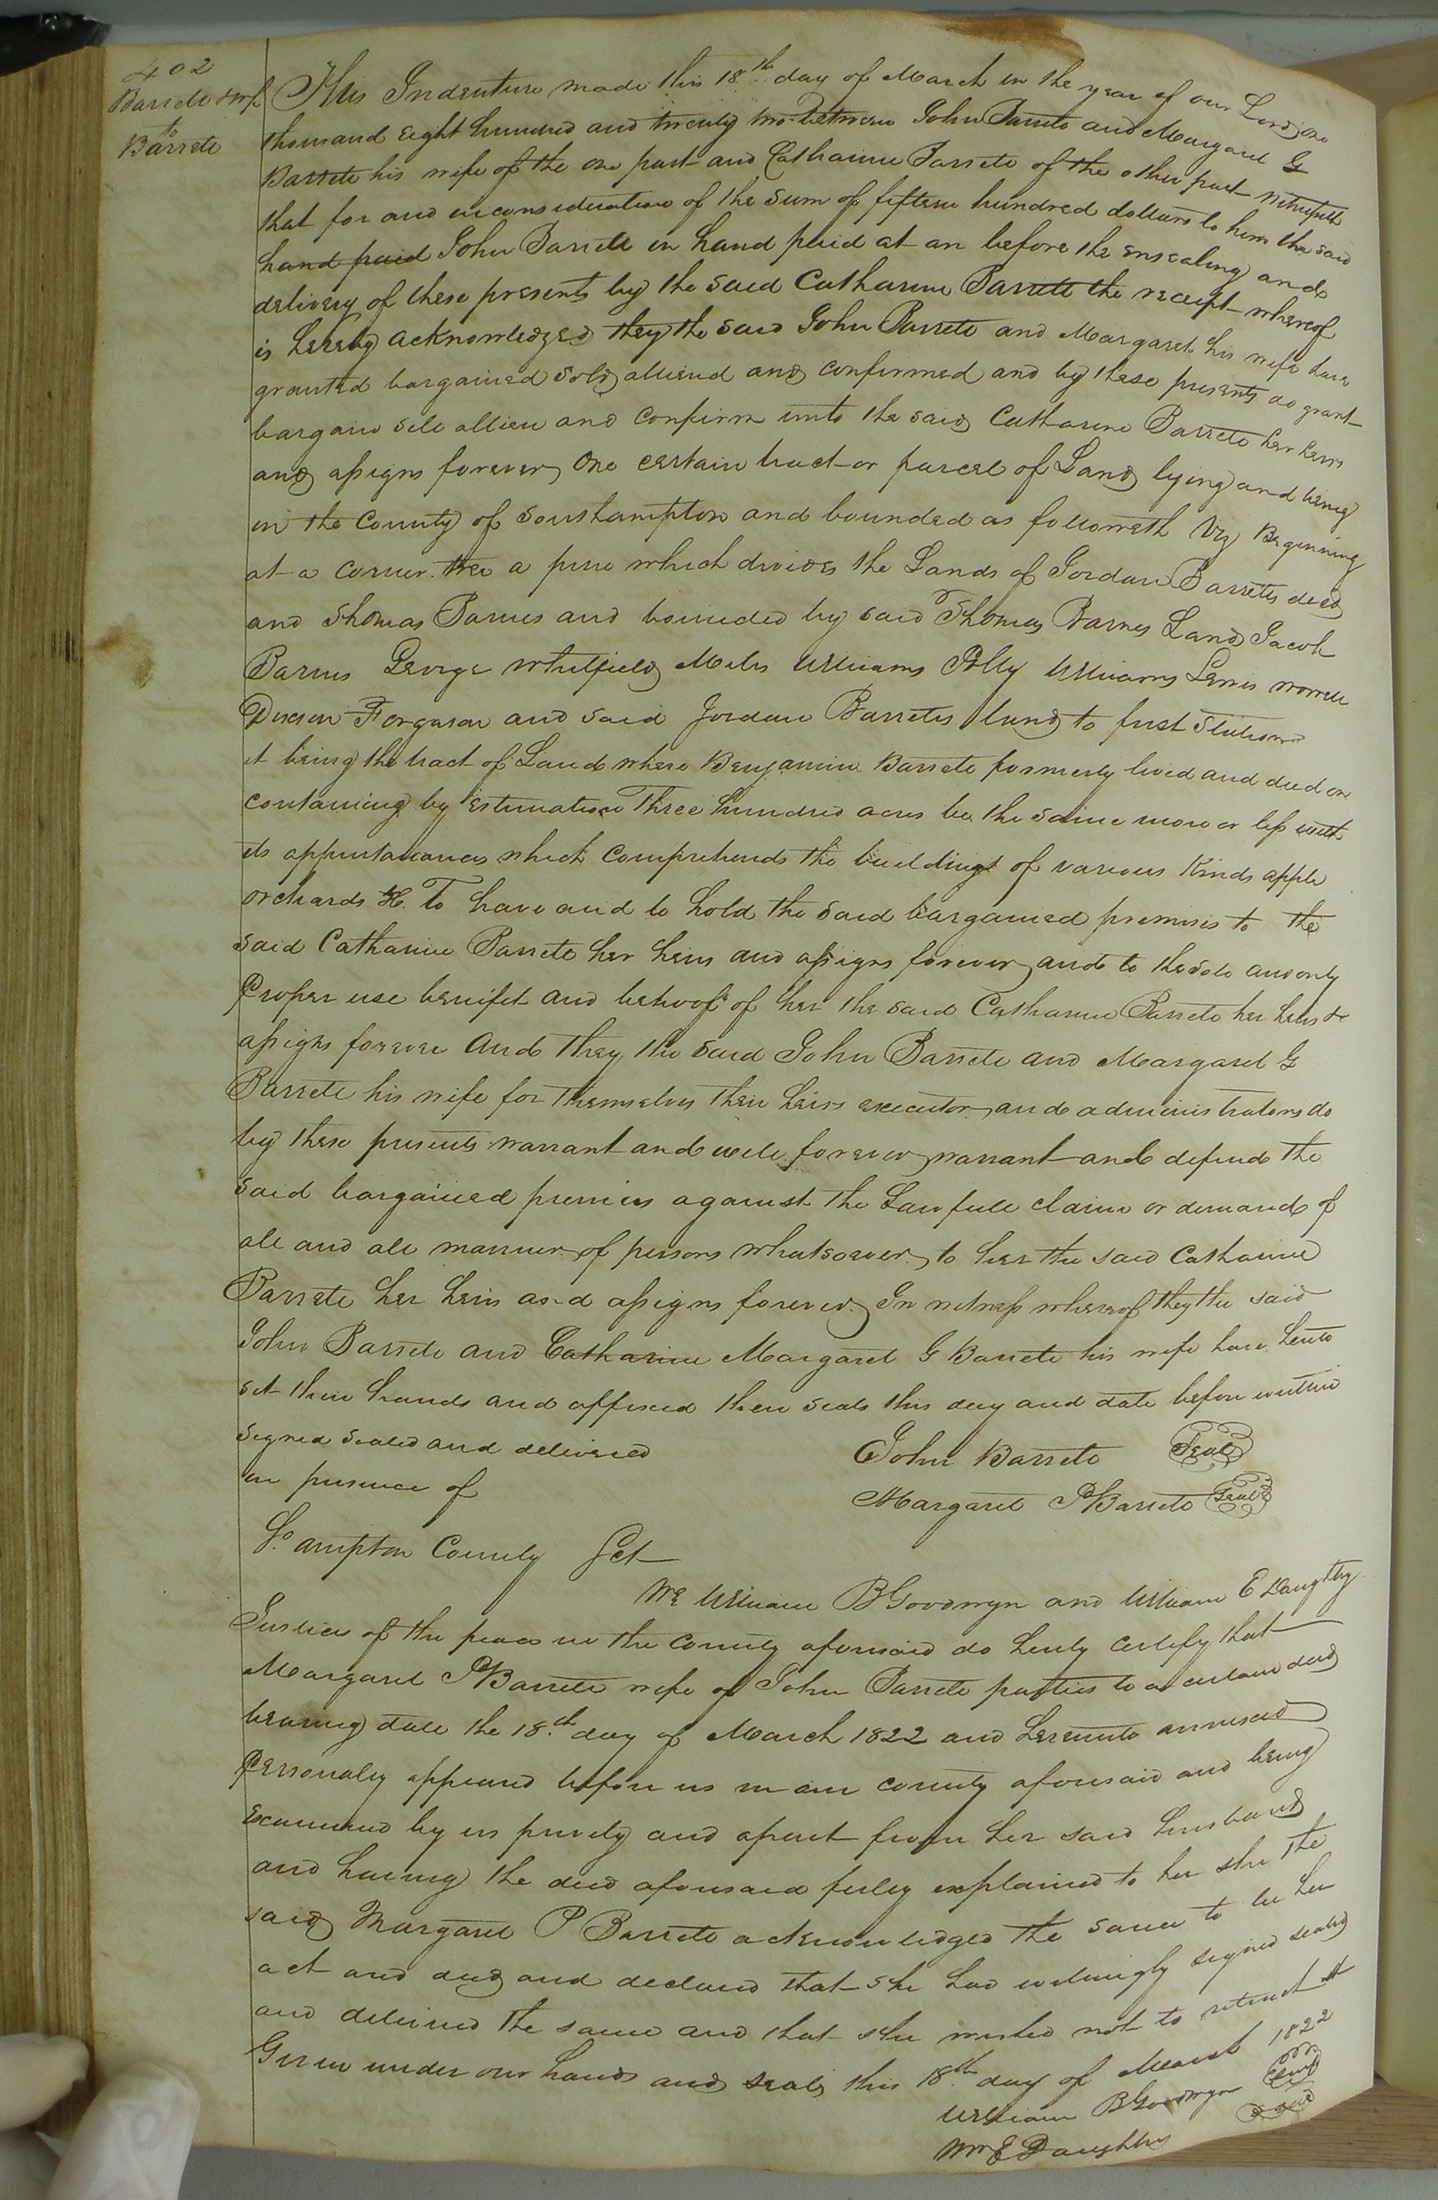 402
Barrete & wife
to
Barrete
This Indenture made this 18th day of March in the year of our Lord one
thousand eight hundred and twenty two between John Barrete and Margaret G
Barrete his wife of the one part and Catharine Barrete of the other part witnesseth
that for and in consideration of the sum of fifteen hundred dollars to him the said
hand paid John Barrete in hand paid at an before the ensealing and
delivery of these presents by the said Catharine Barrete the receipt whereof
is hereby acknowledged they the said John Barrete and Margaret his wife have
granted bargained sold aliend and confirmed and by these presents do grant
bargain sell allien and confirm unto the said Catharine Barrete her heirs
and assigns forever, One certain tract or parcel of Land lying and being
in the County of Southampton and bounded as followeth Viz Beginning
at a corner tree a pine which divides the Lands of Jordan Barretes decd
and Thomas Barnes and bounded by said Thomas Barnes Land, Jacob
Barnes George Whitfield Miles Williams Polly Williams Lewis Worrell
Dixson Forguson and said Jordan Barretes land to first Station
it being the tract of Land where Benjamin Barrete formerly lived and died on
containing by estimation Three hundred acres be the same more or less with
its appurtanances which comprehends the buildings of various kinds apple
orchards &c. To have and to hold the said bargained premises to the
said Catharine Barrete her heirs and assigns forever, and to the sole and only
Proper use benifit and behoof of her the said Catharine Barrete her heirs &
assigns forever And they the said John Barrete and Margaret G
Barrete his wife for themselves their heirs executor and administrators do
by these presents warrant and will forever warrant and defend the
said bargained premises against the Lawfull claim or demands of
all and all manner of persons whatsoever, to her the said Catharine
Barrete her heirs and assigns forever. In witness whereof they the said
John Barrete and Catharine Margaret G Barrete his wife have hento
set their hands and affixed their seals this day and date before written
Signed sealed and delivered
in presence of
John Barrete Seal
Margaret P Barrete Seal
So. ampton County Sct
We William B Goodwyn and William E Daughtry
Justices of the peace in the county aforesaid do herely certify that
Margaret P Barrete wife of John Barrete parties to a certain deed
bearing date the 18th day of March 1822 and hereunto annexed
Personaley appeared before us in our county aforesaid and being
Examined by us privily and apart from her said husband
and having the deed aforesaid fully explained to her she the
said Margaret P Barrete acknowledged the same to be her
act and deed and declared that she had willingly signed sealed
and delivered the same and that she wished not to retract it
Given under our hands and seals this 18th day of March 1822
William B Goodwyn Seal
Wm E Daughtry Seal